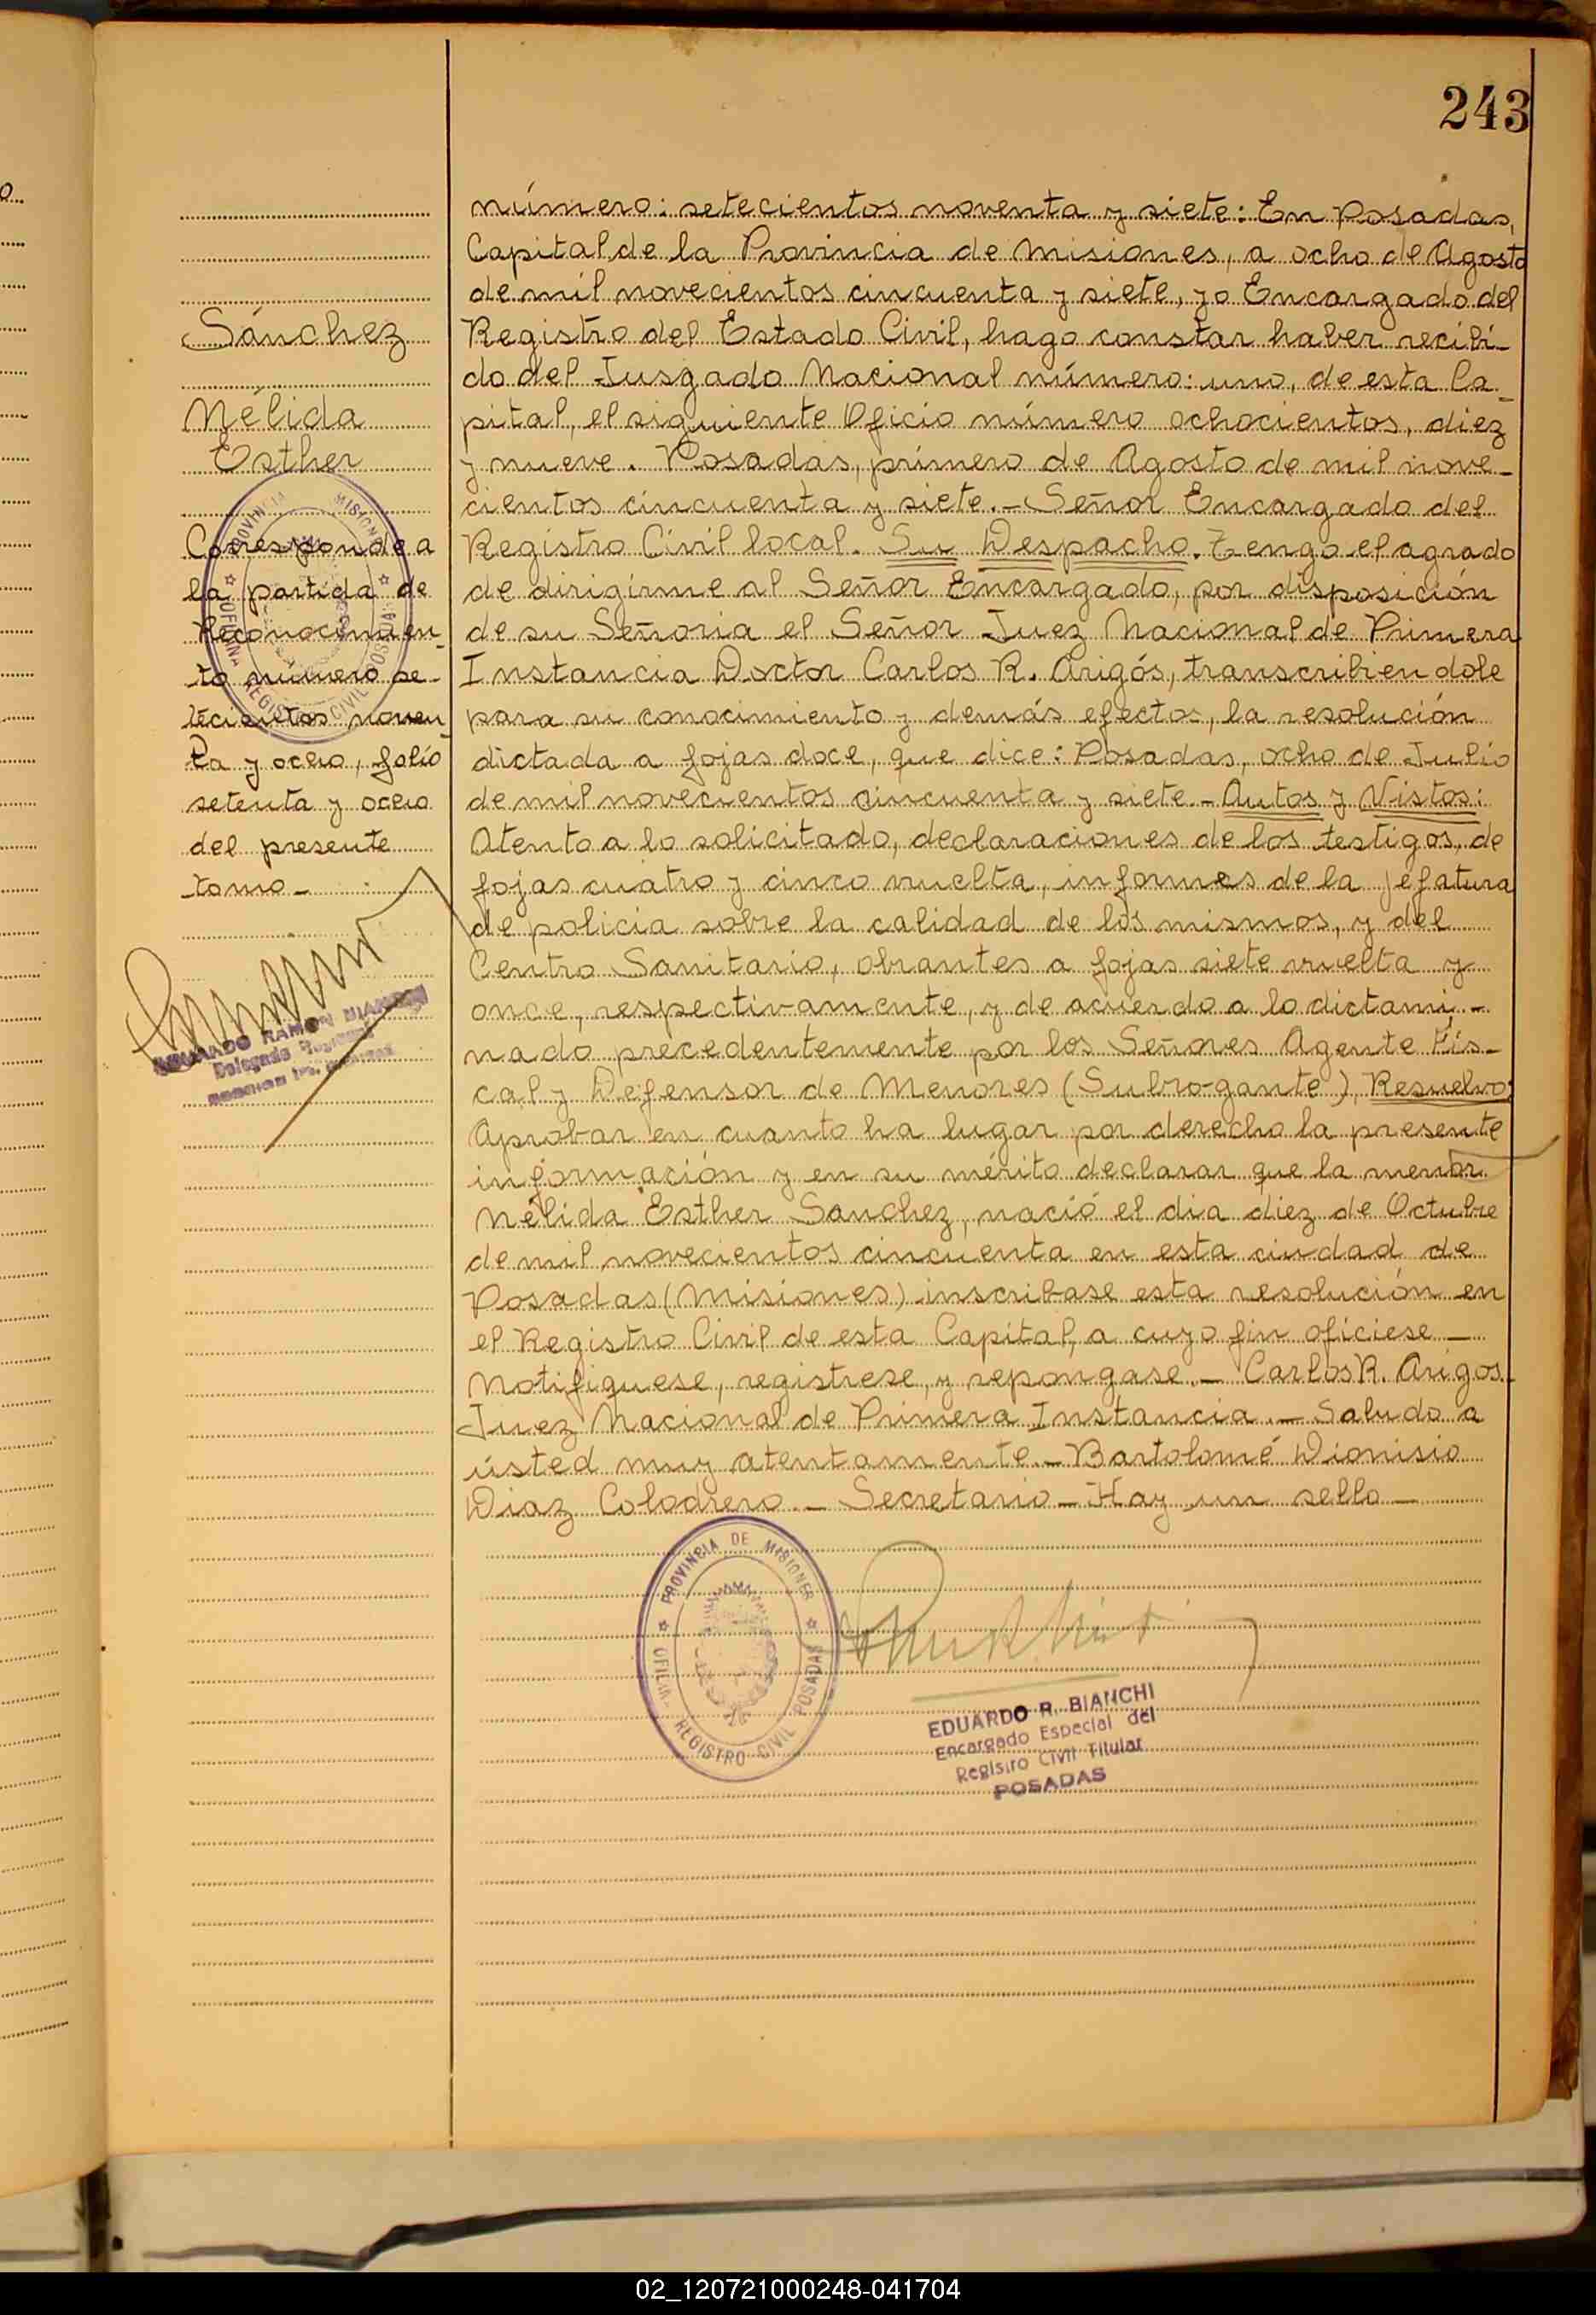 243
Sánchez
Nélida
Esther
Corresponde a
la partida de
Reconocimien-
to número se-
tecientos noven-
ta y ocho, folio
setenta y ocho
del presente
tomo -
PROVINCIA MISIONES
OFICINA REGISTRO CIVIL POSADAS
EDUARDO RAMON BIANCHI
Delegado
número: setecientos noventa y siete: En Posadas,
Capital de la Provincia de Misiones, a ocho de Agosto
de mil novecientos cincuenta y siete, yo Encargado del
Registro del Estado Civil, hago constar haber recibi-
do del Jusgado Nacional número: uno, de esta Ca-
pital, el siguiente Oficio número ochocientos, diez
y nueve. Posadas, primero de Agosto de mil nove-
cientos cincuenta y siete.- Señor Encargado del
Registro Civil local. Su Despacho. Tengo el agrado
de dirigirme al Señor Encargado, por disposición
de su Señoria el Señor Juez Nacional de Primera
Instancia Doctor Carlos R. Arigós, transcribiendole
para su conocimiento y demás efectos, la resolución
dictada a fojas doce, que dice: Posadas, ocho de Julio
de mil novecientos cincuenta y siete.- Autos y Vistos:
Atento a lo solicitado, declaraciones de los testigos, de
fojas cuatro y cinco vuelta, informes de la jefatura
de policia sobre la calidad de los mismos, y del
Centro Sanitario, obrantes a fojas siete vuelta y
once, respectivamente, y de acuerdo a lo dictami-
nado precedentemente por los Señores Agente Fis-
cal y Defensor de Menores (Subrogante), Resuelvo:
Aprobar en cuanto ha lugar por derecho la presente
información y en su mérito declarar que la menor
Nélida Esther Sanchez, nació el dia diez de Octubre
de mil novecientos cincuenta en esta ciudad de
Posadas (Misiones) inscribase esta resolución en
el Registro Civil de esta Capital, a cuyo fin oficiese -
Notifiquese, registrese, y repongase.- Carlos R. Arigos.
Juez Nacional de Primera Instancia.- Saludo a
usted muy atentamente.- Bartolomé Dionisio
Diaz Colodrero.- Secretario- Hay un sello-
PROVINCIA DE MISIONES
OFICINA REGISTRO CIVIL POSADAS
EDUARDO R. BIANCHI
Encargado Especial del
Registro Civil Titular
POSADAS
02_120721000248-041704